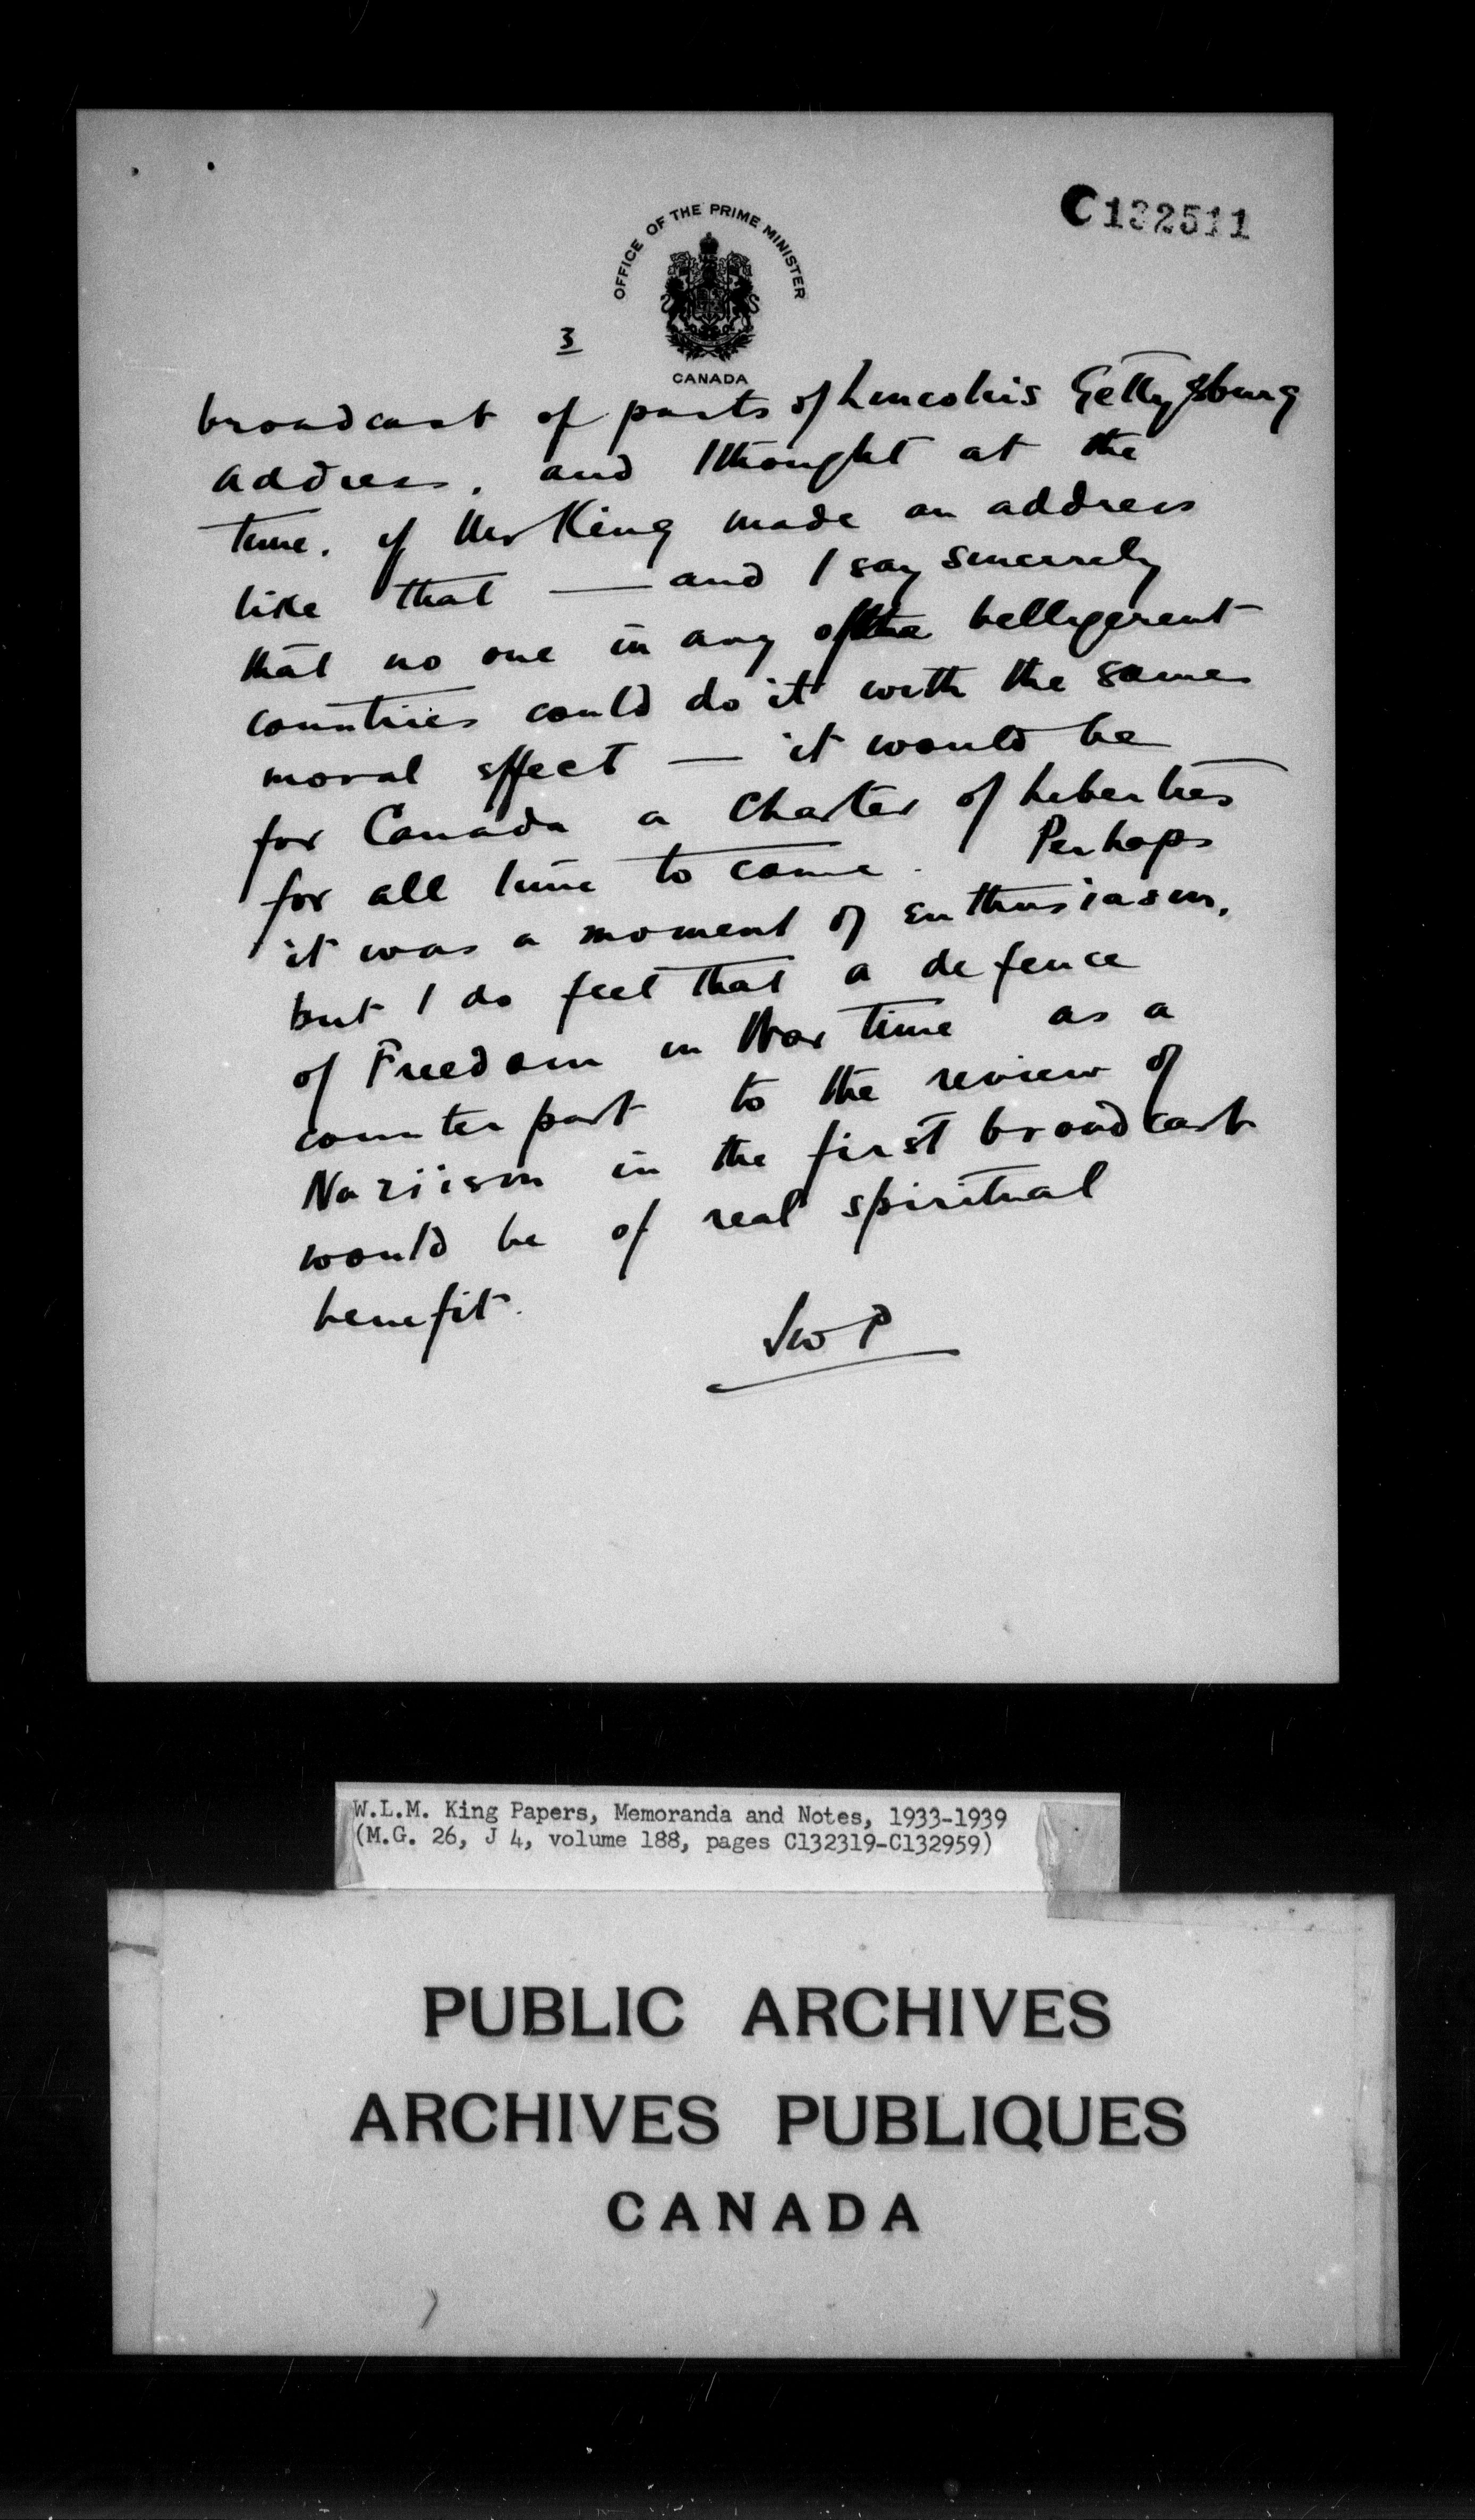 C132511
OFFICE OF THE PRIME MINISTER
CANADA
3
broadcast of parts of Lincoln's Gettysburg
address, and I thought at the
time, if Mr King made an address
like that — and I say sincerely
that no one in any of the belligerent
countries could do it with the same
moral effect — it would be
for Canada a Charter of Liberties
for all time to come. Perhaps
it was a moment of enthusiasm,
but I do feel that a defence
of Freedom in War time as a
counterpart to the review of
Naziism in the first broadcast
would be of real spiritual
benefit.
JWP
W.L.M. King Papers, Memoranda and Notes, 1933-1939
(M.G. 26, J 4, volume 188, pages C132319-C132959)
PUBLIC ARCHIVES
ARCHIVES PUBLIQUES
CANADA